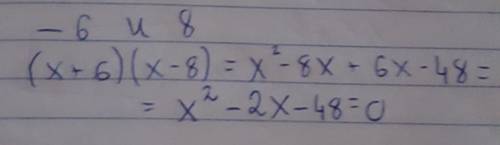 - 6 и 8
(x + 6)(x - 8) = x² - 8x + 6x - 48 =
= x² - 2x - 48 = 0